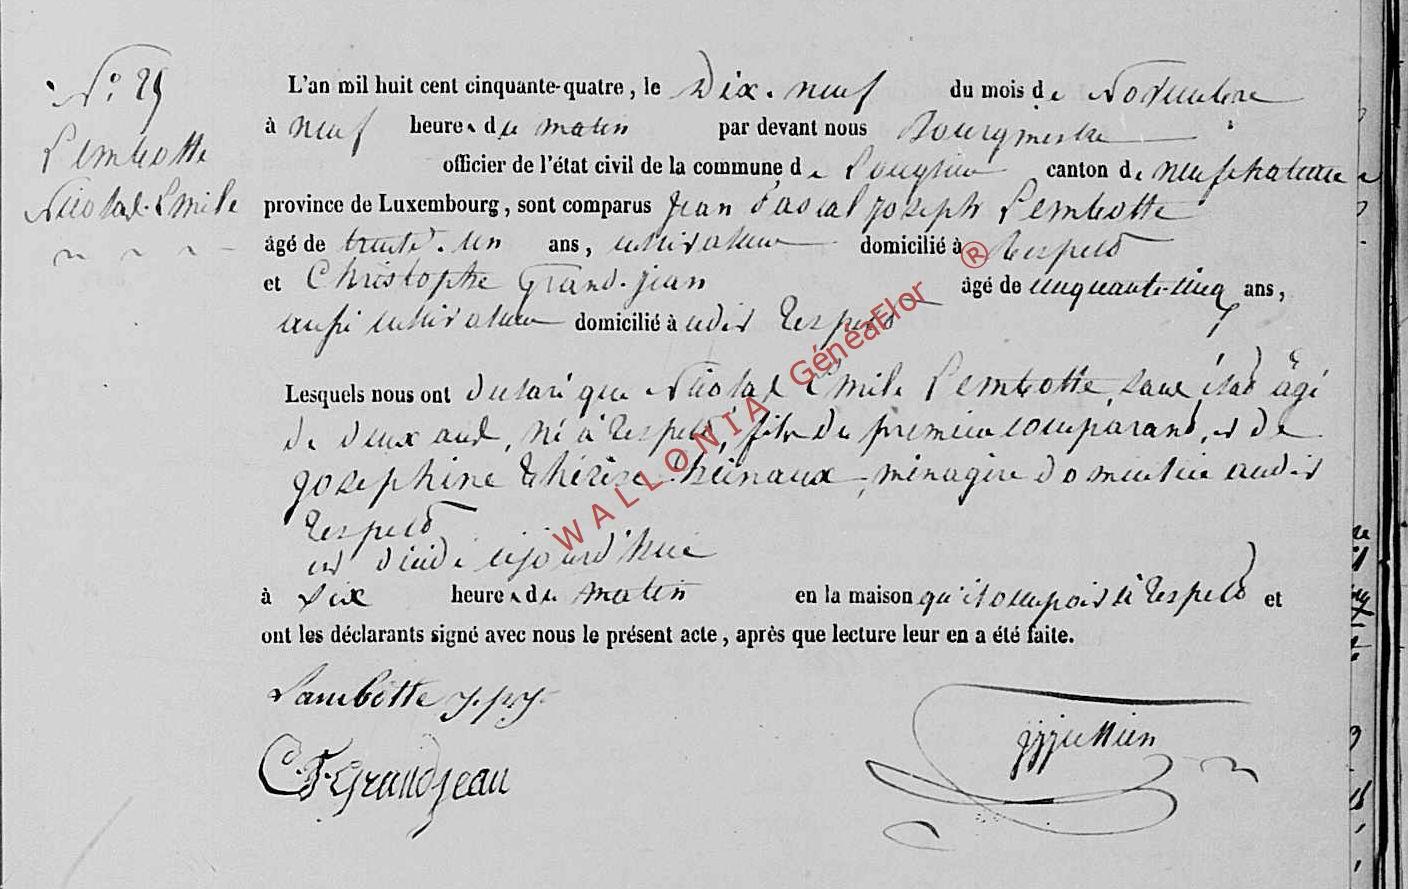 N°. 29
Lembotte
Nicolas-Emile
L'an mil huit cent cinquante-quatre, le Dix-neuf du mois de Novembre
à neuf heures du matin par devant nous Bourgmestre
officier de l'état civil de la commune de Longlier canton de neufchateau
province de Luxembourg, sont comparus Jean Pascal Joseph Lembotte
âgé de trente-un ans, cultivateur domicilié à Respelt
et Christophe Grand-jean âgé de cinquante-cinq ans,
aussi cultivateur domicilié à udit Respelt
Lesquels nous ont déclaré que Nicolas Emile Lembotte, sans état âgé
de deux ans, né à Respelt, fils du premier comparant, et de
Josephine Thérèse Theinaux, ménagère domiciliée audit
Respelt
est décédé aujourd'hui
à six heures du matin en la maison qu'il occupait à Respelt et
ont les déclarants signé avec nous le présent acte, après que lecture leur en a été faite.
Lambotte j.p.j.
C.F. Grandjean
WALLONIA GénéaFlor ®